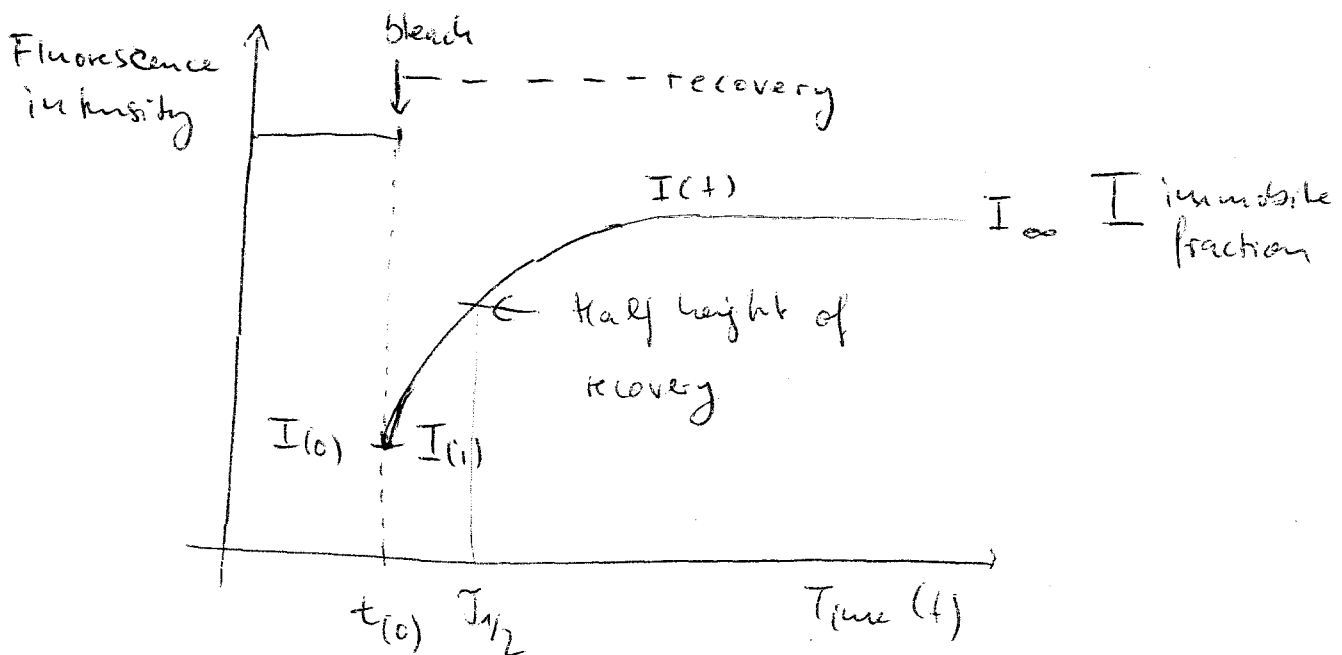 Fluorescence
intensity
bleach
recovery
I(t)
I∞ I immobile
fraction
Half height of
recovery
I(0) I(i)
t(0) T1/2 Time (t)